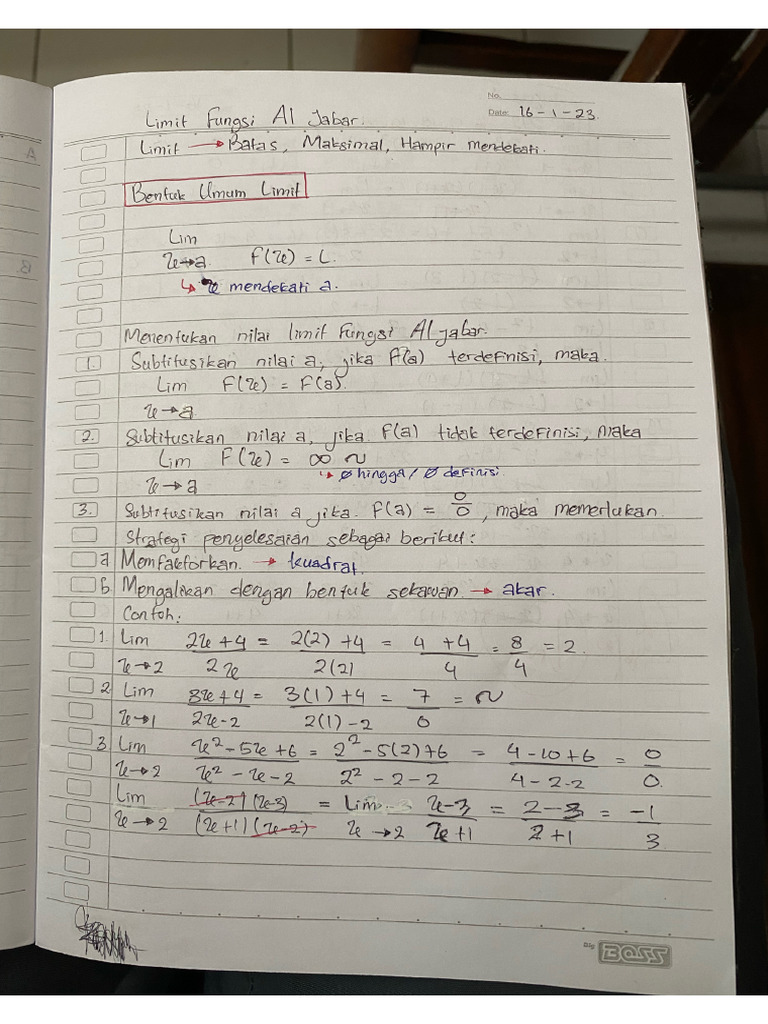 No.
Date: 16-1-23.
Limit Fungsi Al Jabar.
Limit → Batas, Maksimal, Hampir mendekati.
Bentuk Umum Limit
Lim
x→a. F(x) = L.
↳ x mendekati a.
Menentukan nilai limit Fungsi Al jabar.
1. Subtitusikan nilai a, jika F(a) terdefnisi, maka.
Lim F(x) = F(a).
x→a
2. Subtitusikan nilai a, jika F(a) tidak terdefinisi, maka
Lim F(x) = ∞ ~
x→a ↳ ∅ hingga / ∅ definisi.
3. Subtitusikan nilai a jika. F(a) = 0/0, maka memerlukan.
Strategi penyelesaian sebagai berikut:
a Memfaktorkan. → kuadrat.
b. Mengalikan dengan bentuk sekawan. → akar.
Contoh:
1. Lim 2x+4 = 2(2)+4 = 4+4 = 8 = 2.
x→2 2x 2(2) 4 4
2 Lim 3x+4 = 3(1)+4 = 7 = ~
x→1 2x-2 2(1)-2 0
3. Lim x²-5x+6 = 2²-5(2)+6 = 4-10+6 = 0
x→2 x²-x-2 2²-2-2 4-2-2 0.
Lim (x-2)(x-3) = Lim x-3 = 2-3 = -1
x→2 (x+1)(x-2) x→2 x+1 2+1 3
Big BOSS